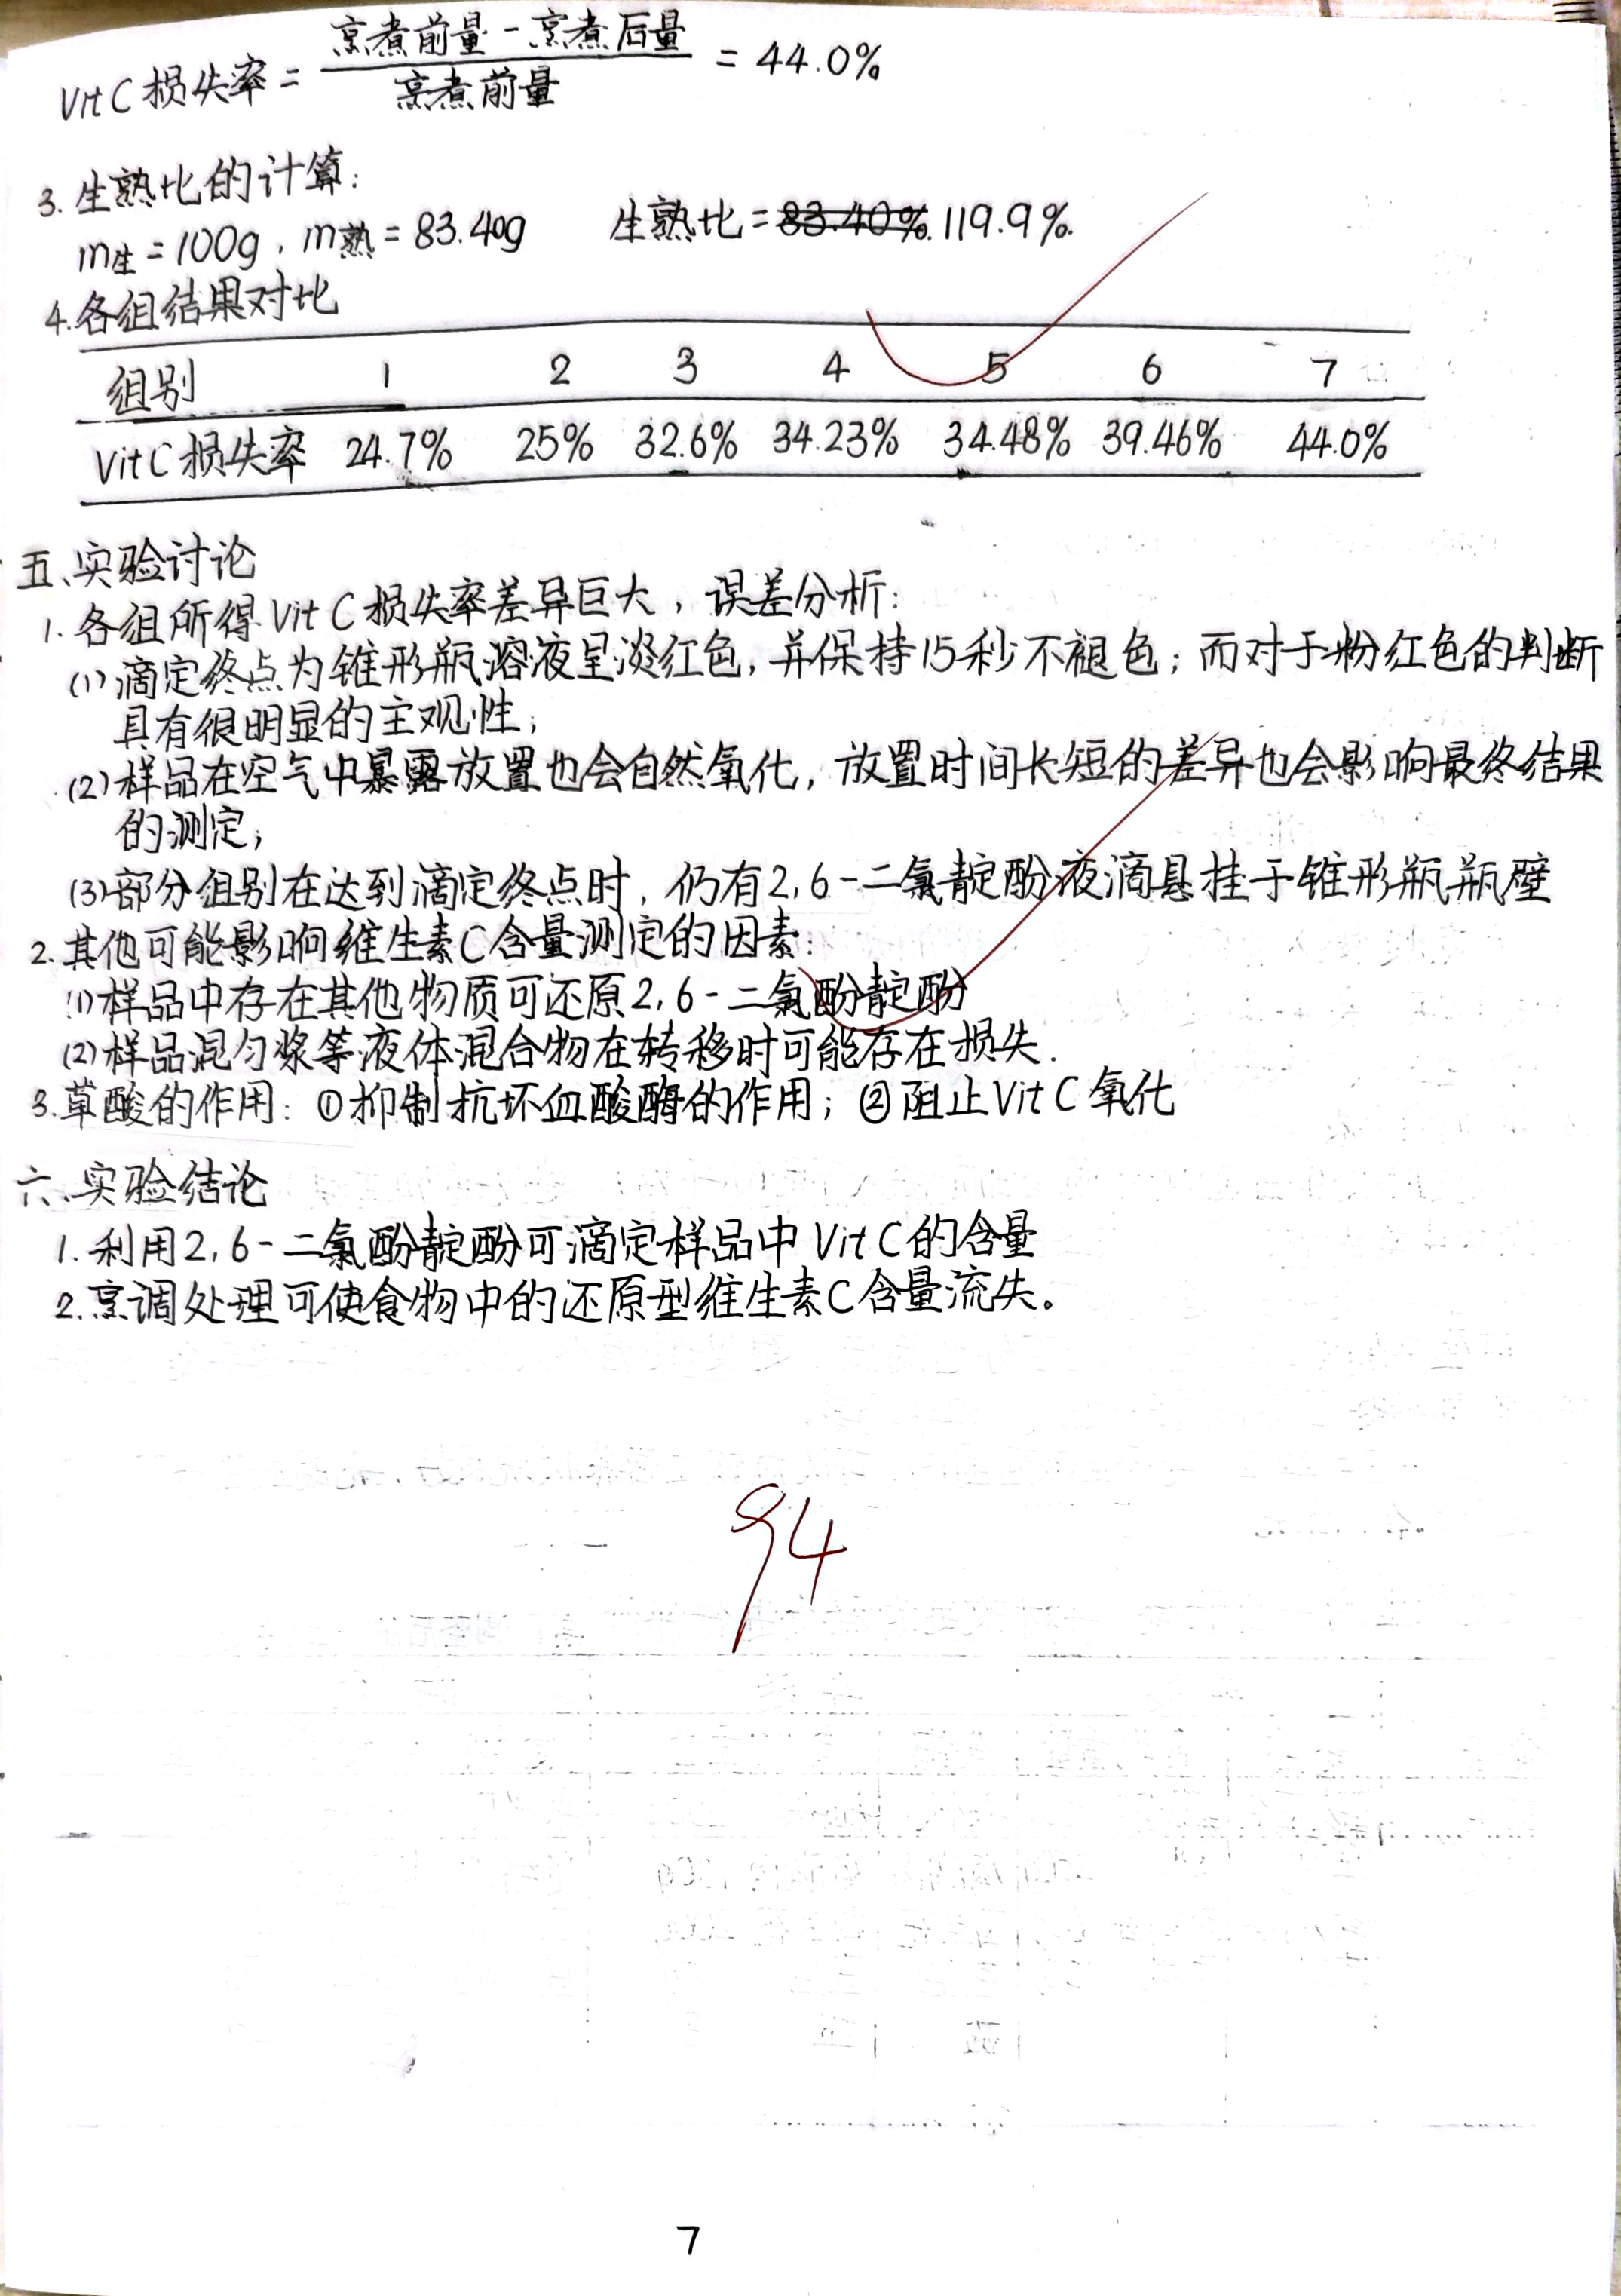 VitC损失率 = 烹煮前量-烹煮后量 / 烹煮前量 = 44.0%
3. 生熟比的计算:
m生=100g, m熟=83.40g 生熟比=83.40% 119.9%.
4.各组结果对比
组别 1 2 3 4 5 6 7
VitC损失率 24.7% 25% 32.6% 34.23% 34.48% 39.46% 44.0%
五、实验讨论
1. 各组所得VitC损失率差异巨大,误差分析:
(1)滴定终点为锥形瓶溶液呈淡红色,并保持15秒不褪色;而对于粉红色的判断
具有很明显的主观性;
(2)样品在空气中暴露放置也会自然氧化,放置时间长短的差异也会影响最终结果
的测定;
(3)部分组别在达到滴定终点时,仍有2,6-二氯靛酚液滴悬挂于锥形瓶瓶壁
2.其他可能影响维生素C含量测定的因素:
(1)样品中存在其他物质可还原2,6-二氯酚靛酚
(2)样品混匀浆等液体混合物在转移时可能存在损失.
3.草酸的作用:①抑制抗坏血酸酶的作用;②阻止VitC氧化
六、实验结论
1. 利用2,6-二氯酚靛酚可滴定样品中VitC的含量
2.烹调处理可使食物中的还原型维生素C含量流失。
94
7